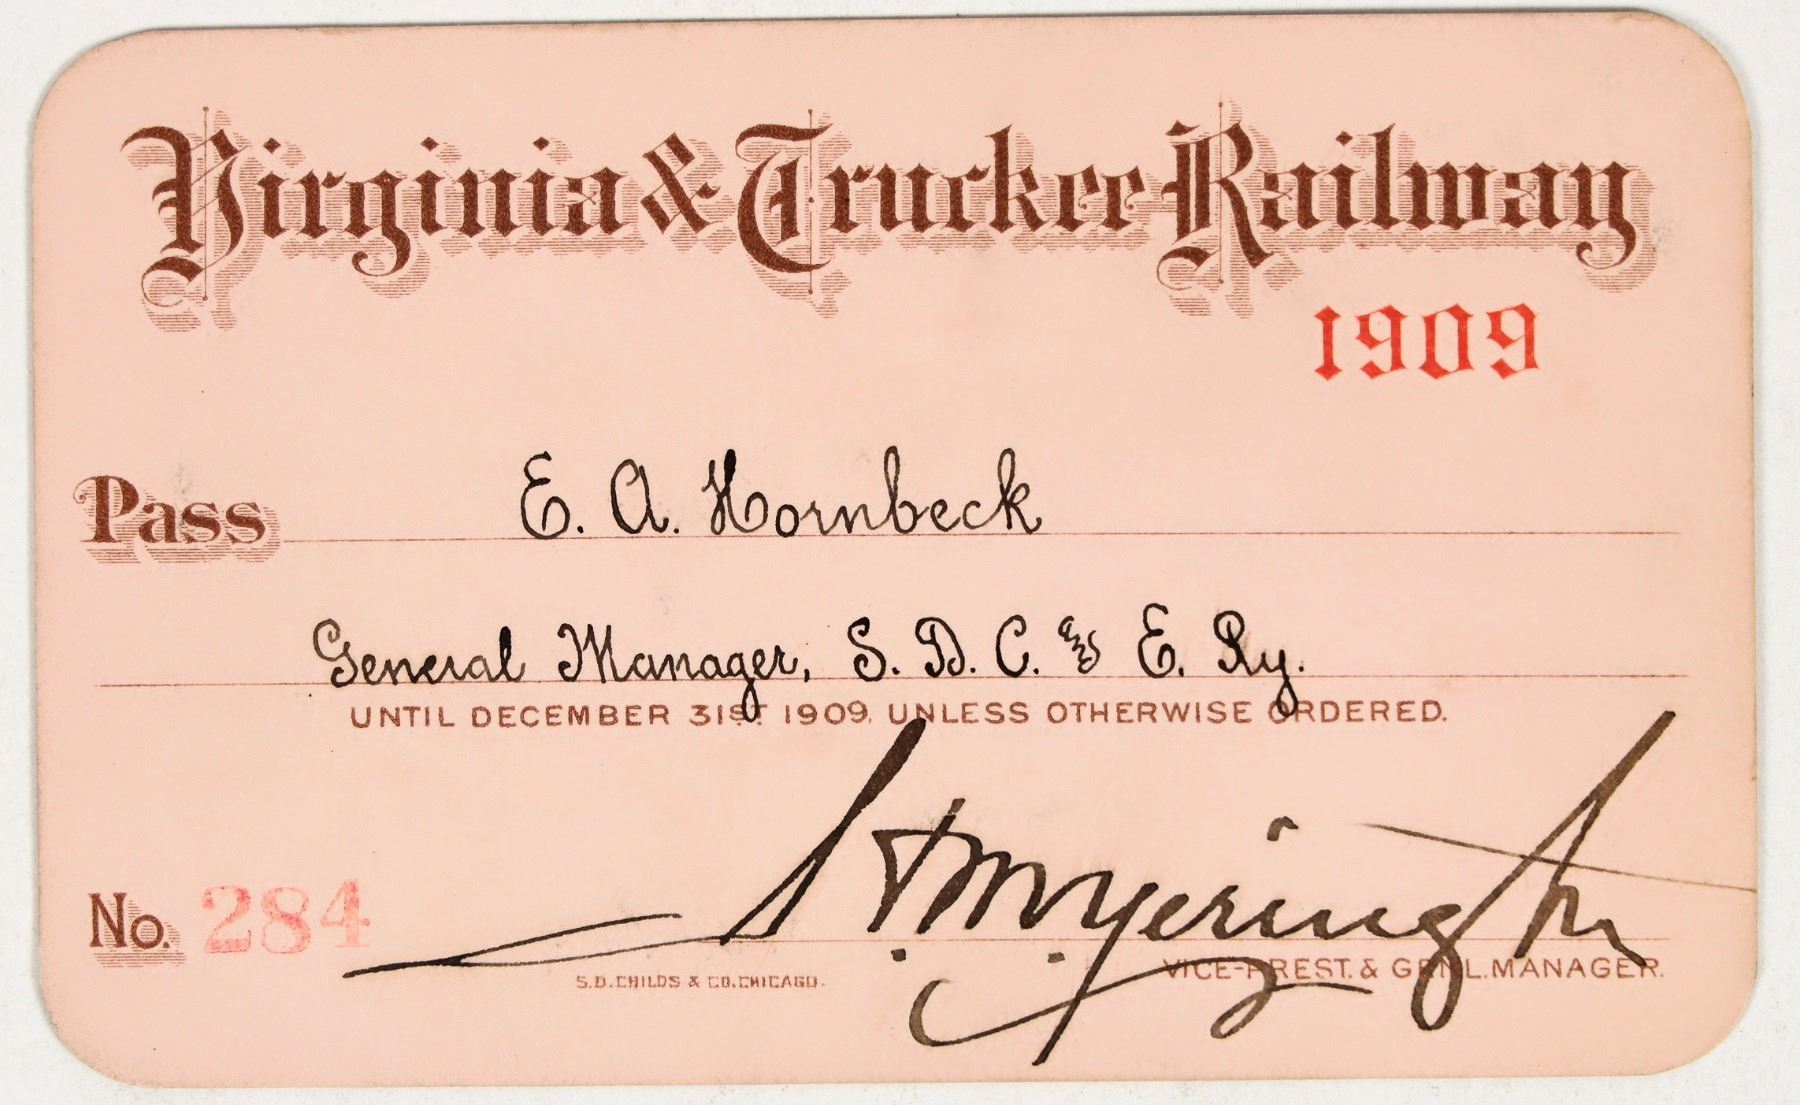 Virginia & Truckee Railway
1909
Pass E. A. Hornbeck
General Manager, S. D. C. & E. Ry.
UNTIL DECEMBER 31ST 1909, UNLESS OTHERWISE ORDERED.
No. 284
S.D. CHILDS & CO. CHICAGO.
VICE-PREST. & GEN'L. MANAGER.